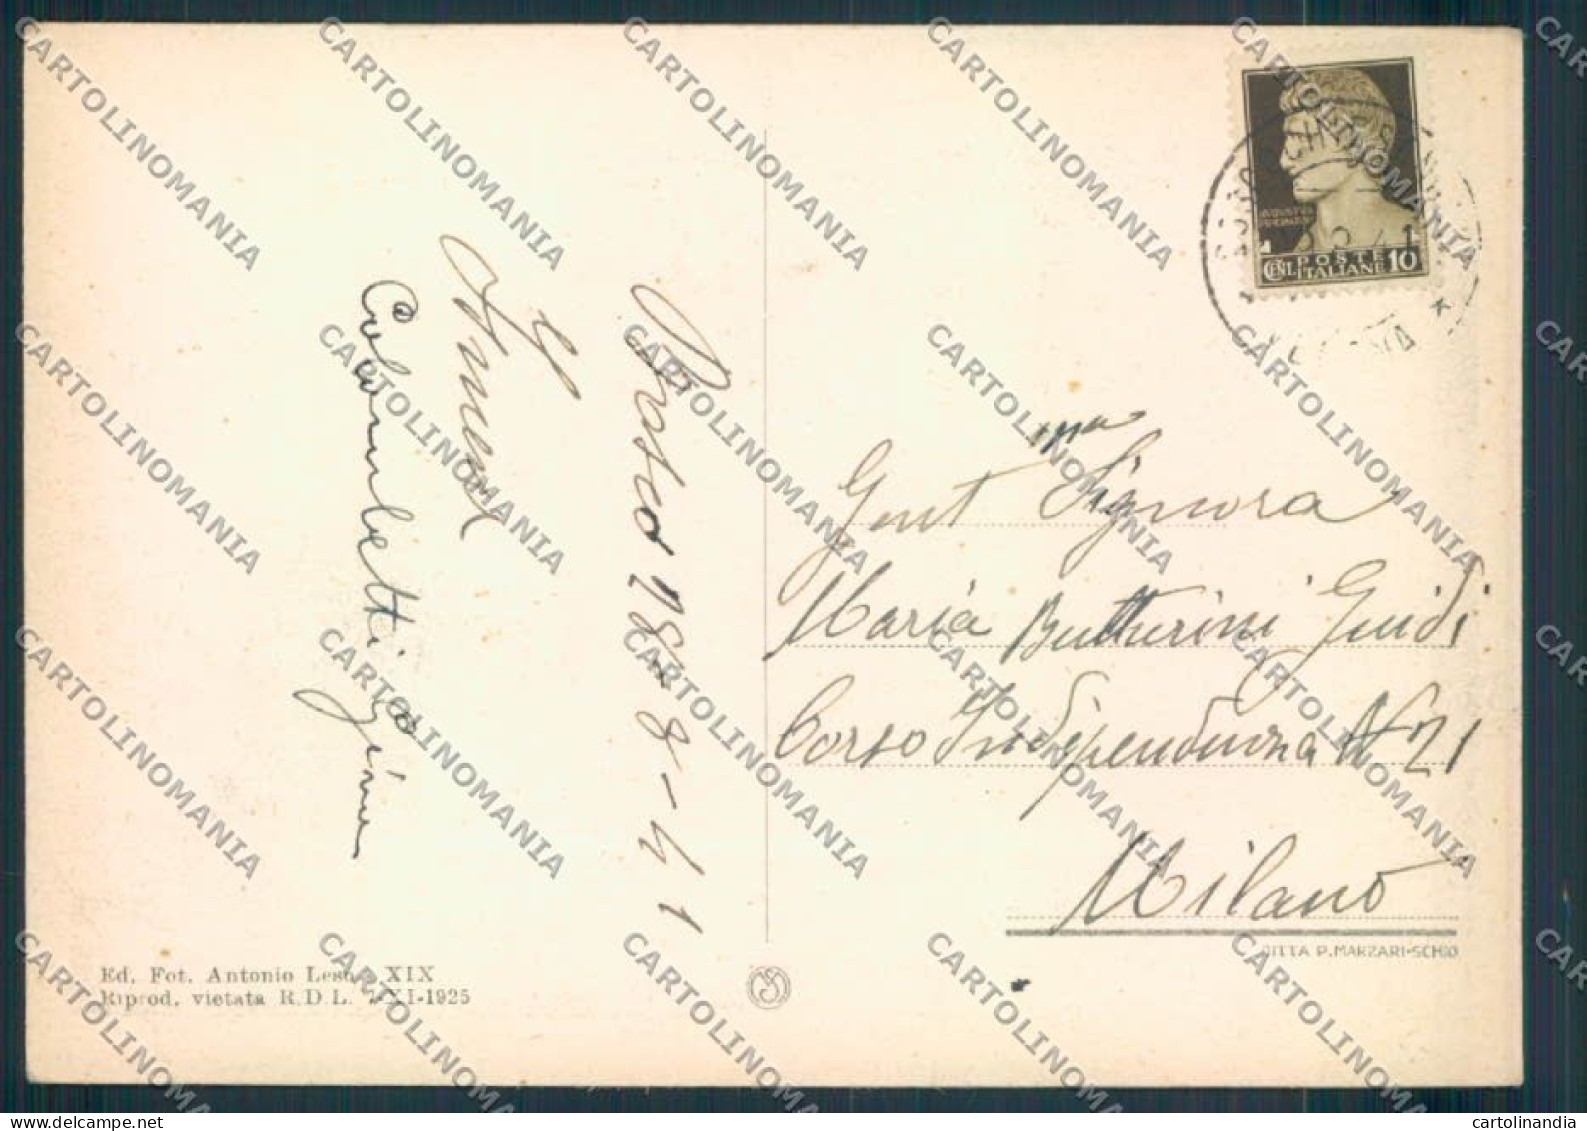 Bosco 18-8-41
Colombetti
Gent ma Signora
Maria Butturini Guidi
Corso Indipendenza N 21
Milano
POSTE
CENT. ITALIANE 10
8.41
VERONA
DITTA P. MARZARI-SCHIO
Ed. Fot. Antonio XIX
Riprod. vietata R.D.L. XI-1925
CARTOLINOMANIA
cartolinandia